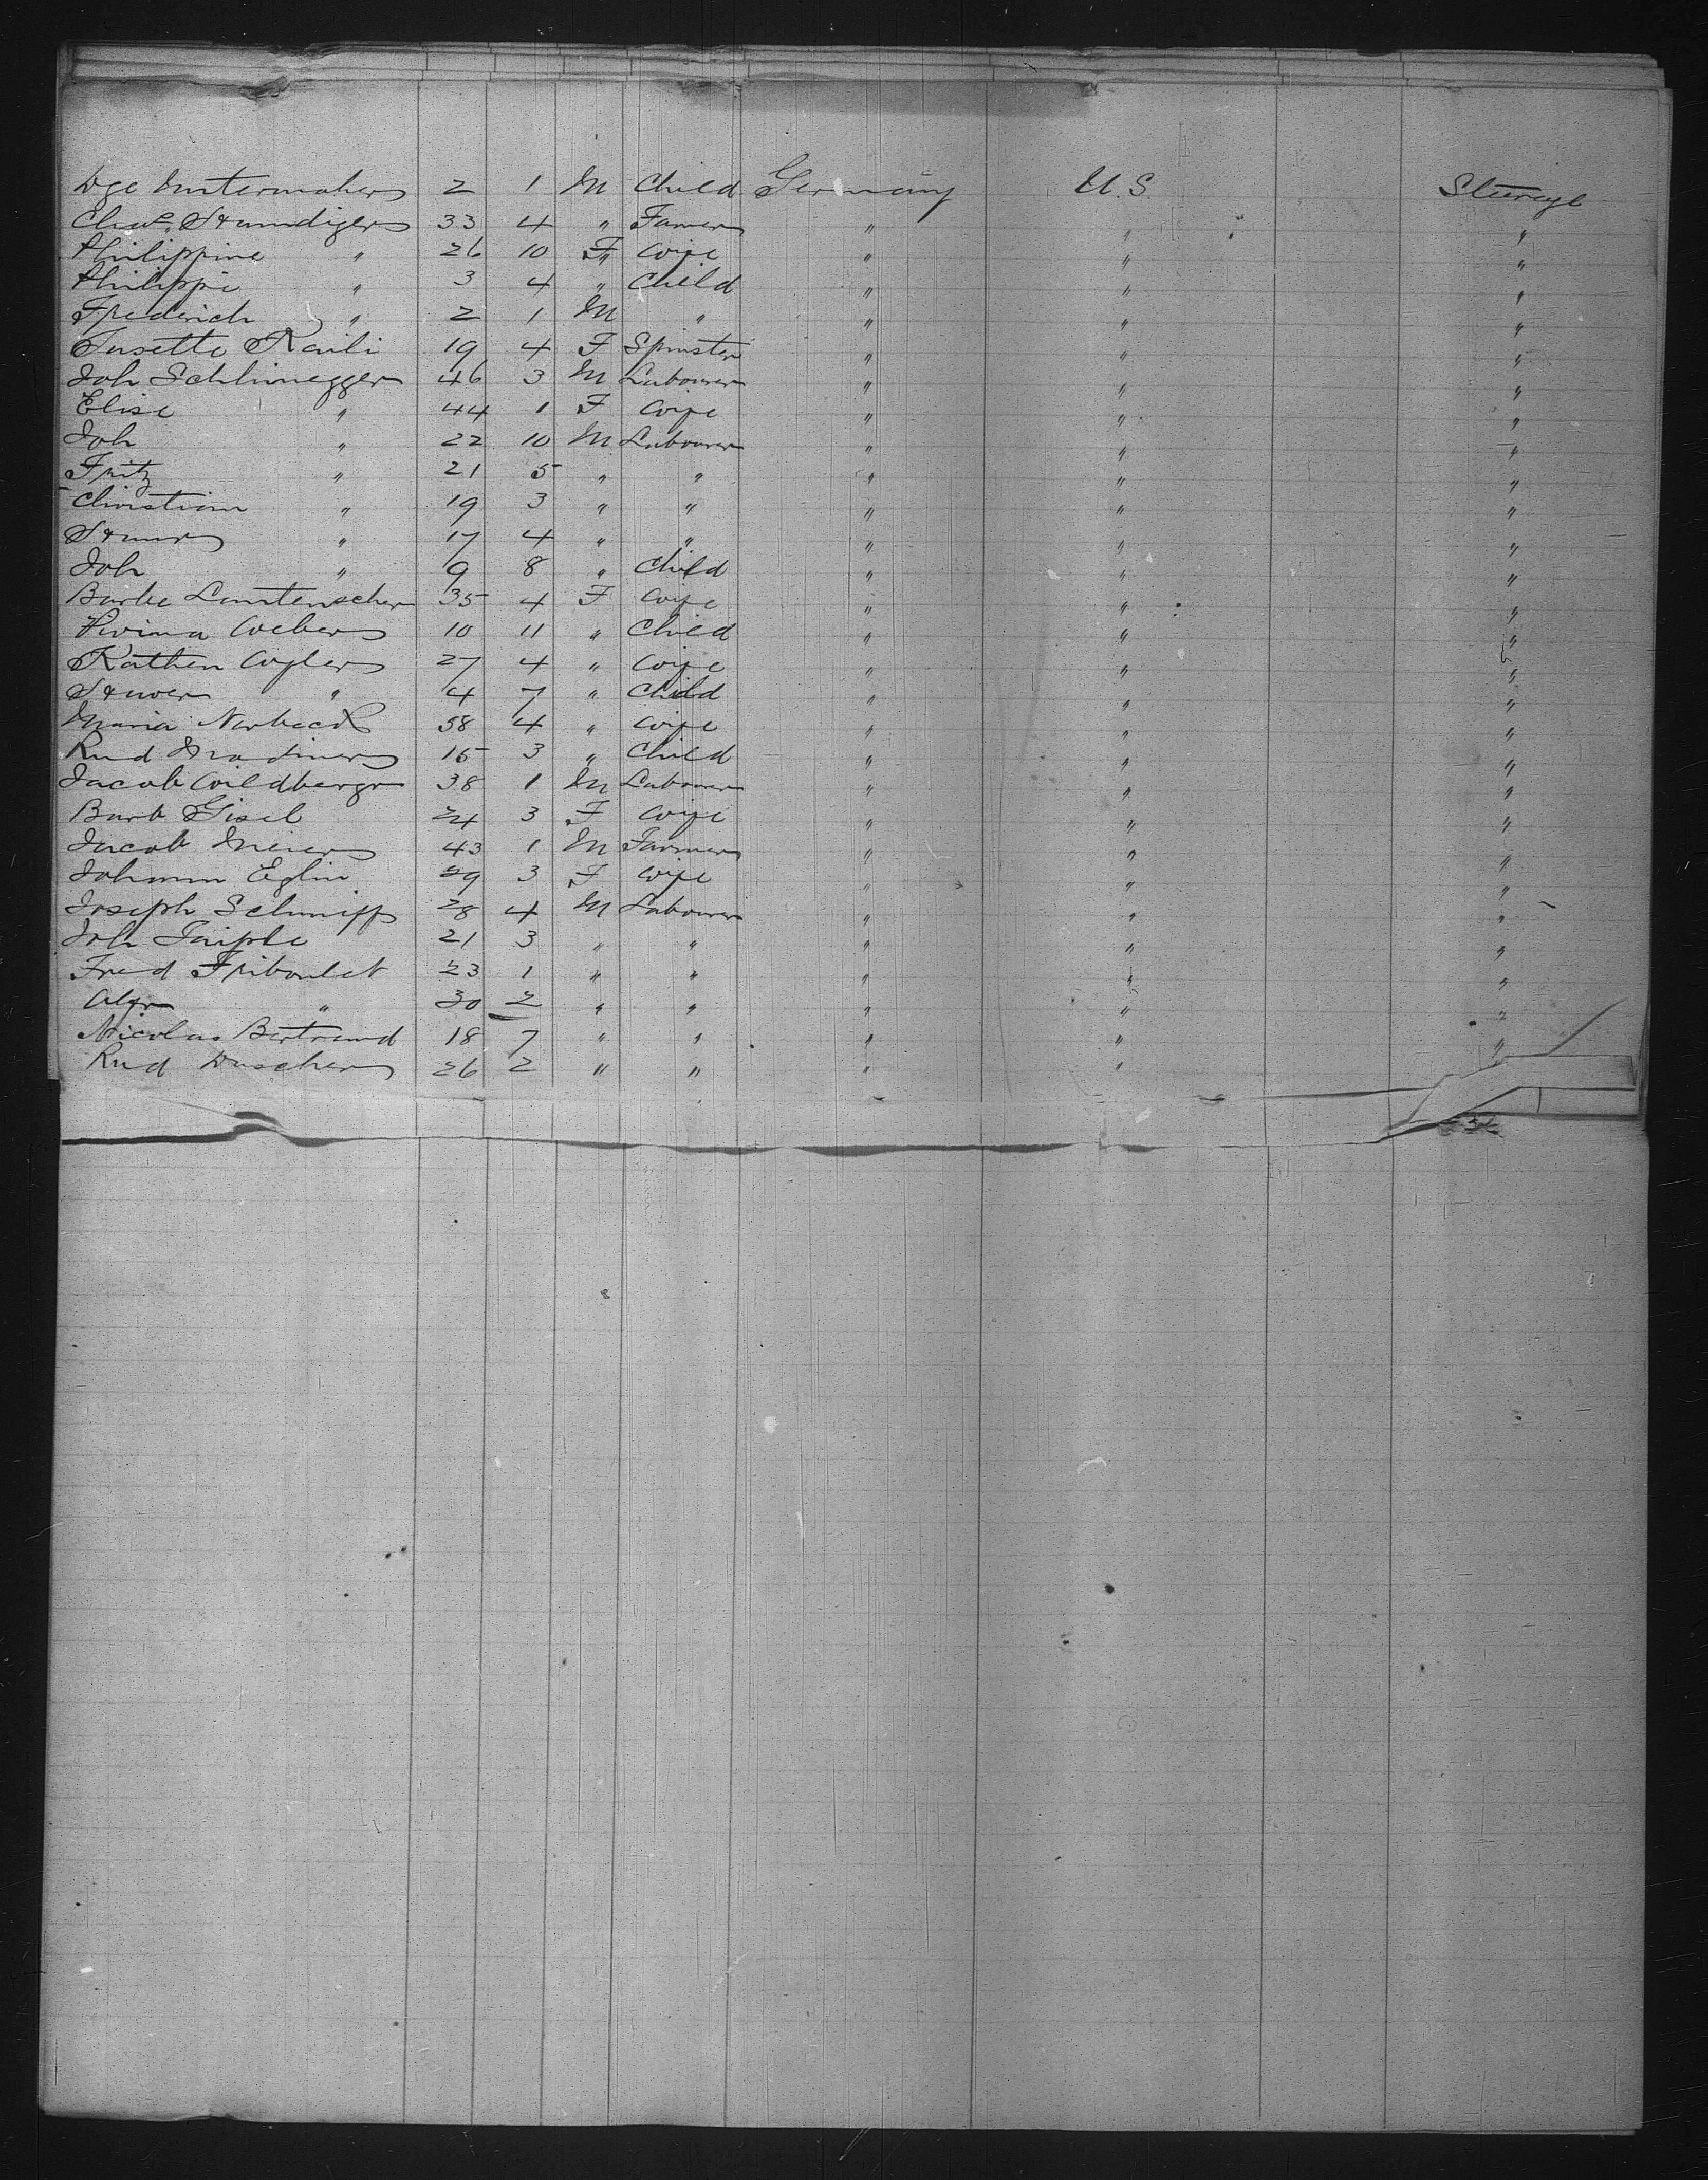 2 1 M Child Germany U.S. Steerage
33 4 " Farmer " " "
Philippine " 26 10 F wife " " "
Philippi " 3 4 " Child " " "
Frederich " 2 1 M " " " "
19 4 F Spinster " " "
Joh Schlunegger 46 3 M Labourer " " "
Elise " 44 1 F wife " " "
Joh " 22 10 M Labourer " " "
Fritz " 21 5 " " " " "
Christian " 19 3 " " " " "
" 17 4 " " " " "
Joh " 9 8 " Child " " "
Barbe Lautenscher 35 4 F wife " " "
Weber 10 11 " Child " " "
Kathen Wyler 27 4 " wife " " "
" 4 7 " Child " " "
Maria Norbeck 58 4 " wife " " "
Rud 15 3 " Child " " "
Jacob Wildberger 38 1 M Labourer " " "
Barb Gisel 24 3 F wife " " "
Jacob Meier 43 1 M Farmer " " "
Johann Eglin 29 3 F wife " " "
Joseph 28 4 M Labourer " " "
Joh 21 3 " " " " "
Fred Friboulet 23 1 " " " " "
" 30 2 " " " " "
Nicolas Bertrand 18 7 " " " " "
Rud Duscher 26 2 " " " "